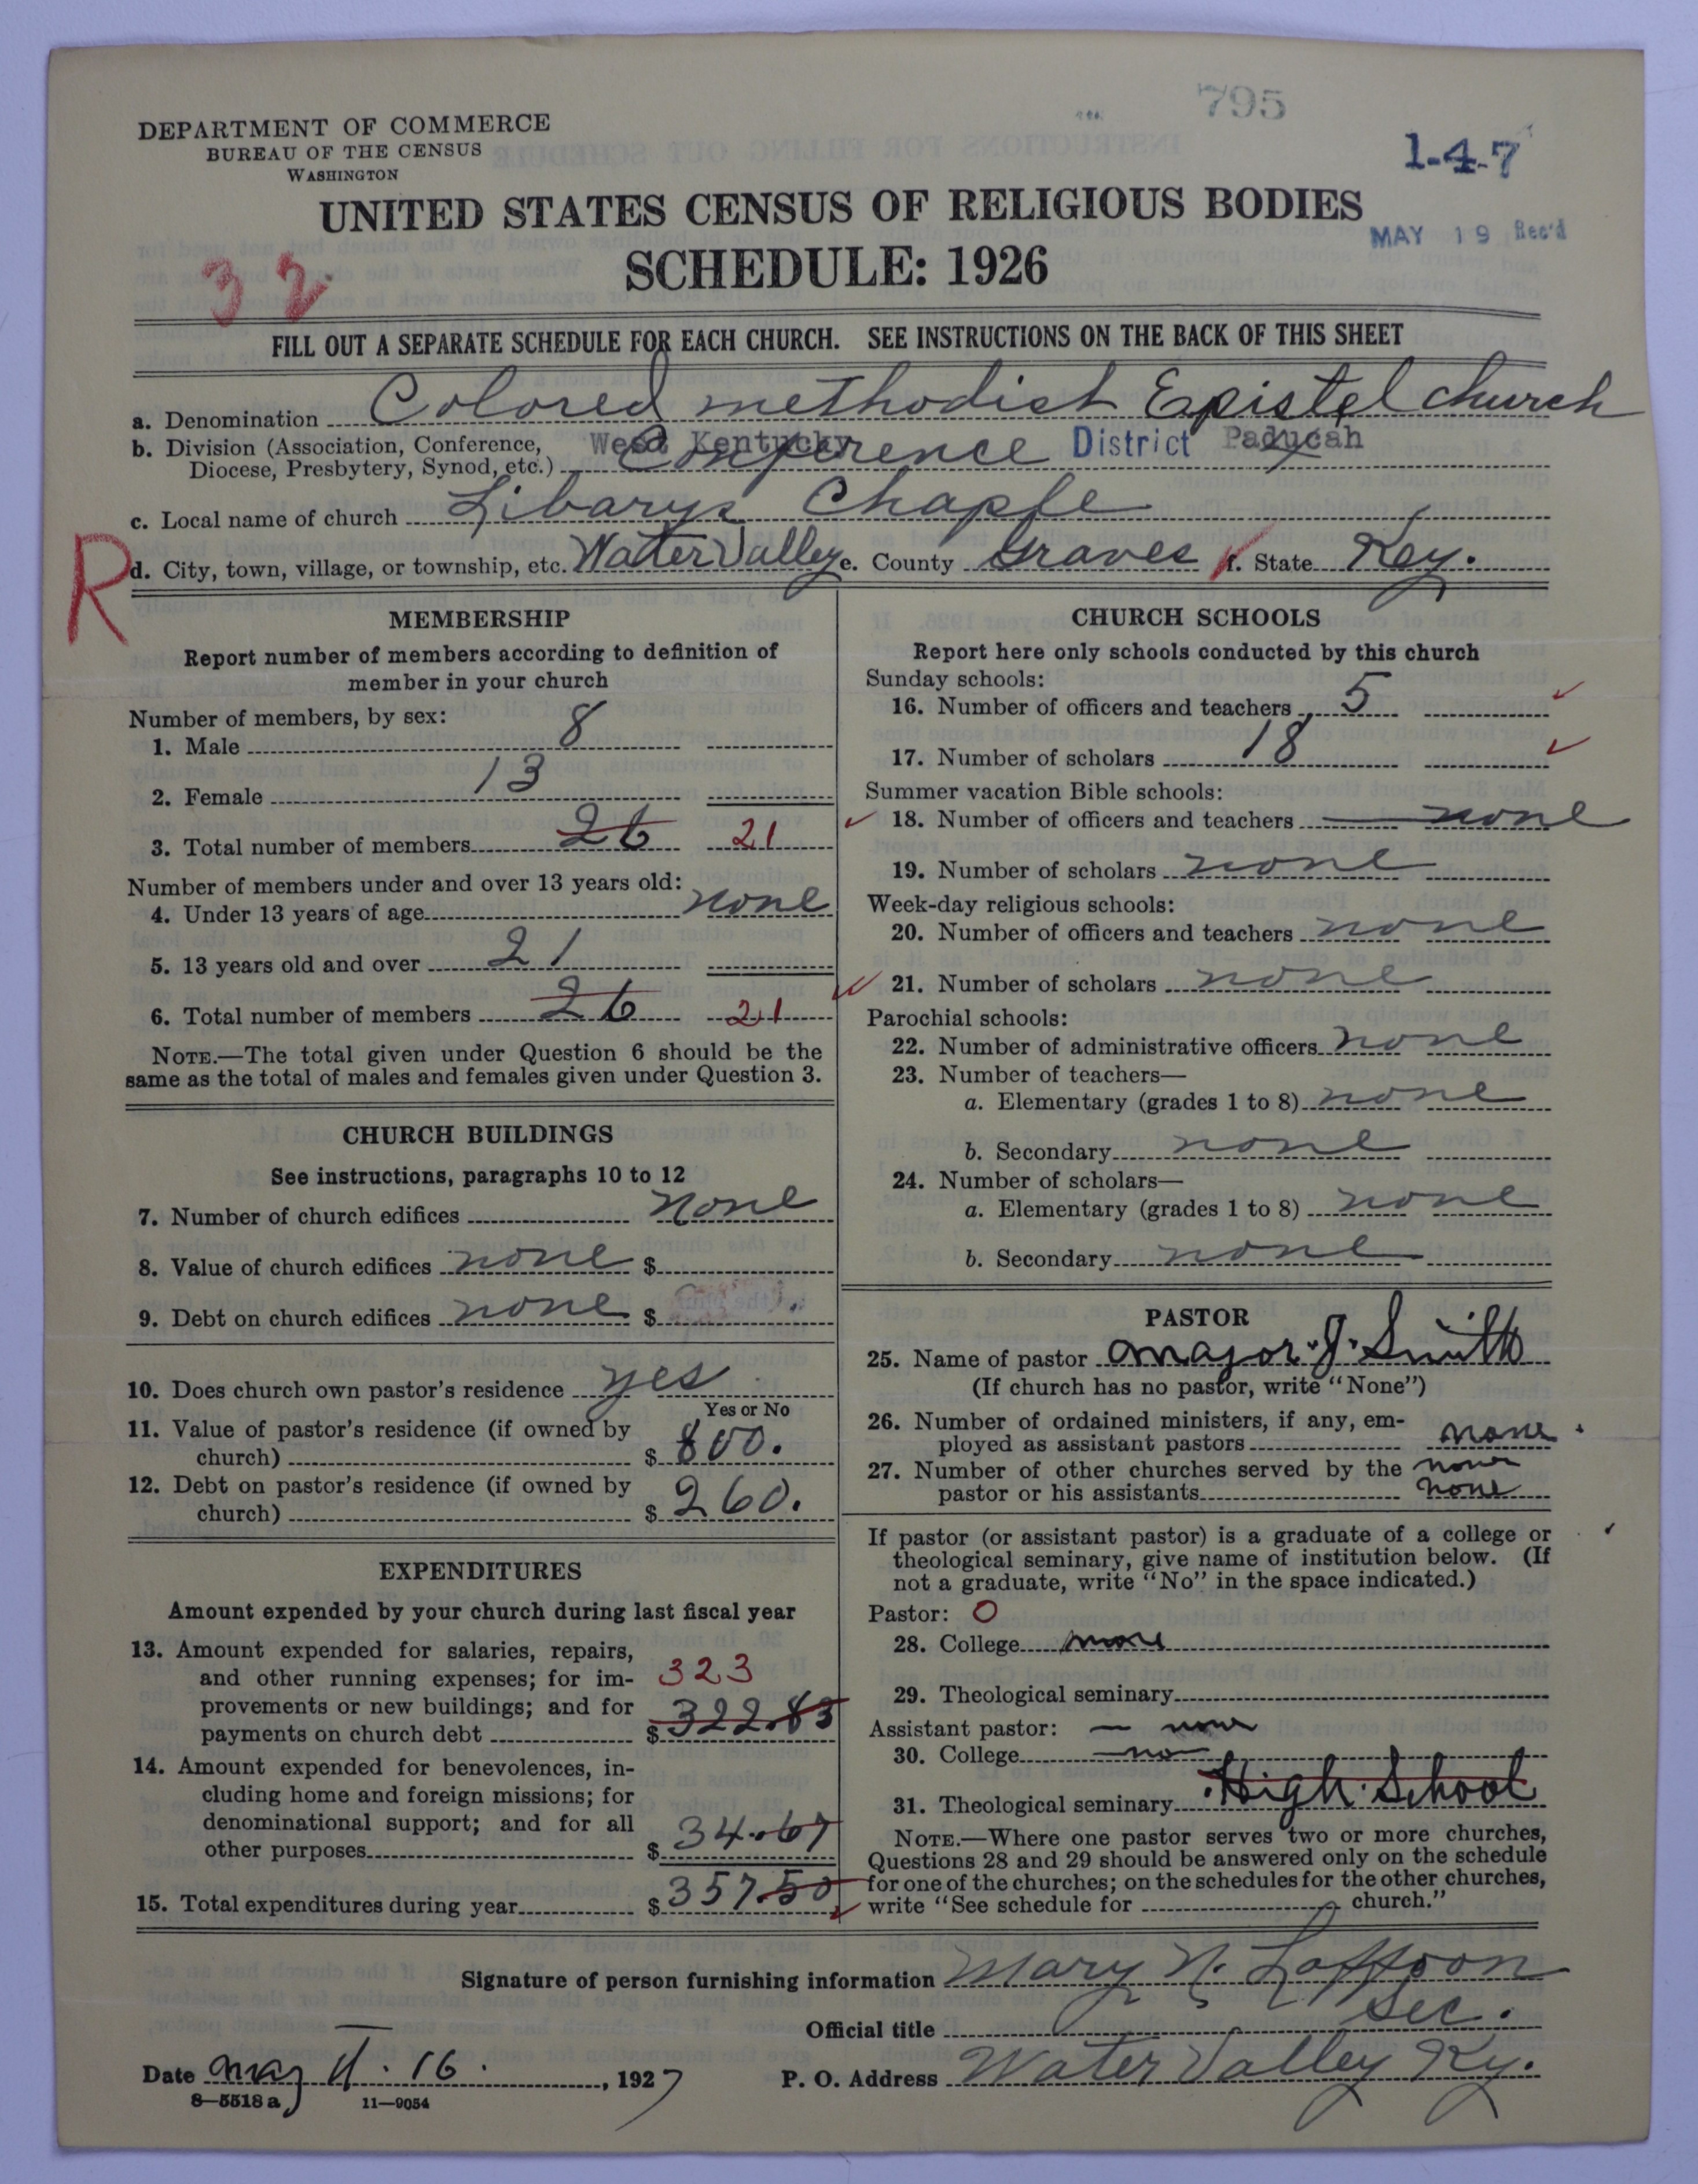 795
DEPARTMENT OF COMMERCE
BUREAU OF THE CENSUS
WASHINGTON
1-4-7
UNITED STATES CENSUS OF RELIGIOUS BODIES
MAY 19 Rec'd
SCHEDULE: 1926
32
FILL OUT A SEPARATE SCHEDULE FOR EACH CHURCH. SEE INSTRUCTIONS ON THE BACK OF THIS SHEET
a. Denomination Colored methodist Epistel church
b. Division (Association, Conference, Diocese, Presbytery, Synod, etc.) West Kentucky Conference District Paducah
c. Local name of church Libarys Chaple
R
d. City, town, village, or township, etc. Water Valley e. County Graves f. State Key.
MEMBERSHIP
Report number of members according to definition of
member in your church
Number of members, by sex:
1. Male 8
2. Female 13
3. Total number of members 26 21
Number of members under and over 13 years old:
4. Under 13 years of age none
5. 13 years old and over 21
6. Total number of members 26 21
NOTE.—The total given under Question 6 should be the
same as the total of males and females given under Question 3.
CHURCH BUILDINGS
See instructions, paragraphs 10 to 12
7. Number of church edifices none
8. Value of church edifices none $
9. Debt on church edifices none $
10. Does church own pastor's residence yes
Yes or No
11. Value of pastor's residence (if owned by
church) $ 800.
12. Debt on pastor's residence (if owned by
church) $ 260.
EXPENDITURES
Amount expended by your church during last fiscal year
13. Amount expended for salaries, repairs,
and other running expenses; for im- 323
provements or new buildings; and for
payments on church debt $ 322.83
14. Amount expended for benevolences, in-
cluding home and foreign missions; for
denominational support; and for all
other purposes $ 34.67
15. Total expenditures during year $ 357.50
CHURCH SCHOOLS
Report here only schools conducted by this church
Sunday schools:
16. Number of officers and teachers 5
17. Number of scholars 18
Summer vacation Bible schools:
18. Number of officers and teachers none
19. Number of scholars none
Week-day religious schools:
20. Number of officers and teachers none
21. Number of scholars none
Parochial schools:
22. Number of administrative officers none
23. Number of teachers—
a. Elementary (grades 1 to 8) none
b. Secondary none
24. Number of scholars—
a. Elementary (grades 1 to 8) none
b. Secondary none
PASTOR
25. Name of pastor major. J. Smith
(If church has no pastor, write "None")
26. Number of ordained ministers, if any, em-
ployed as assistant pastors none
27. Number of other churches served by the none
pastor or his assistants none
If pastor (or assistant pastor) is a graduate of a college or
theological seminary, give name of institution below. (If
not a graduate, write "No" in the space indicated.)
Pastor: 0
28. College none
29. Theological seminary
Assistant pastor: — none
30. College no
31. Theological seminary High School
NOTE.—Where one pastor serves two or more churches,
Questions 28 and 29 should be answered only on the schedule
for one of the churches; on the schedules for the other churches,
write "See schedule for church."
Signature of person furnishing information Mary N. Loffoon
Official title Sec.
Date may 16. , 1927
P. O. Address Water Valley Ky.
8—5518 a
11—9054